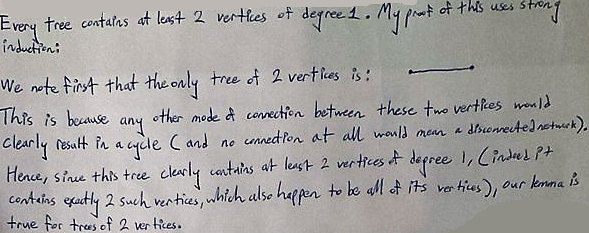 Every tree contains at least 2 vertices of degree 1. My proof of this uses strong
induction:
We note first that the only tree of 2 vertices is:
This is because any other mode of connection between these two vertices would
clearly result in a cycle (and no connection at all would mean a disconnected network).
Hence, since this tree clearly contains at least 2 vertices of degree 1, (indeed it
contains exactly 2 such vertices, which also happen to be all of its vertices), our lemma is
true for trees of 2 vertices.